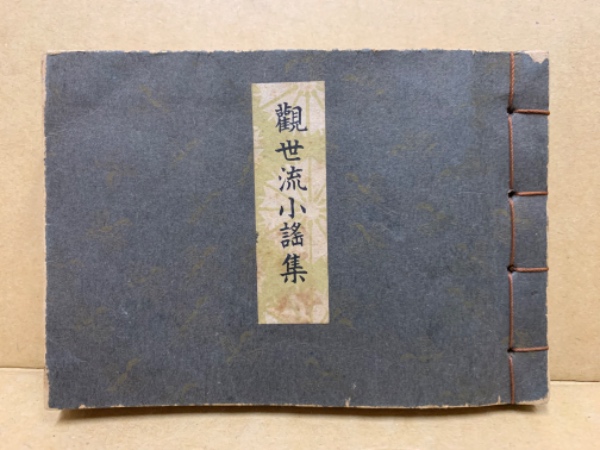 觀世流小謠集